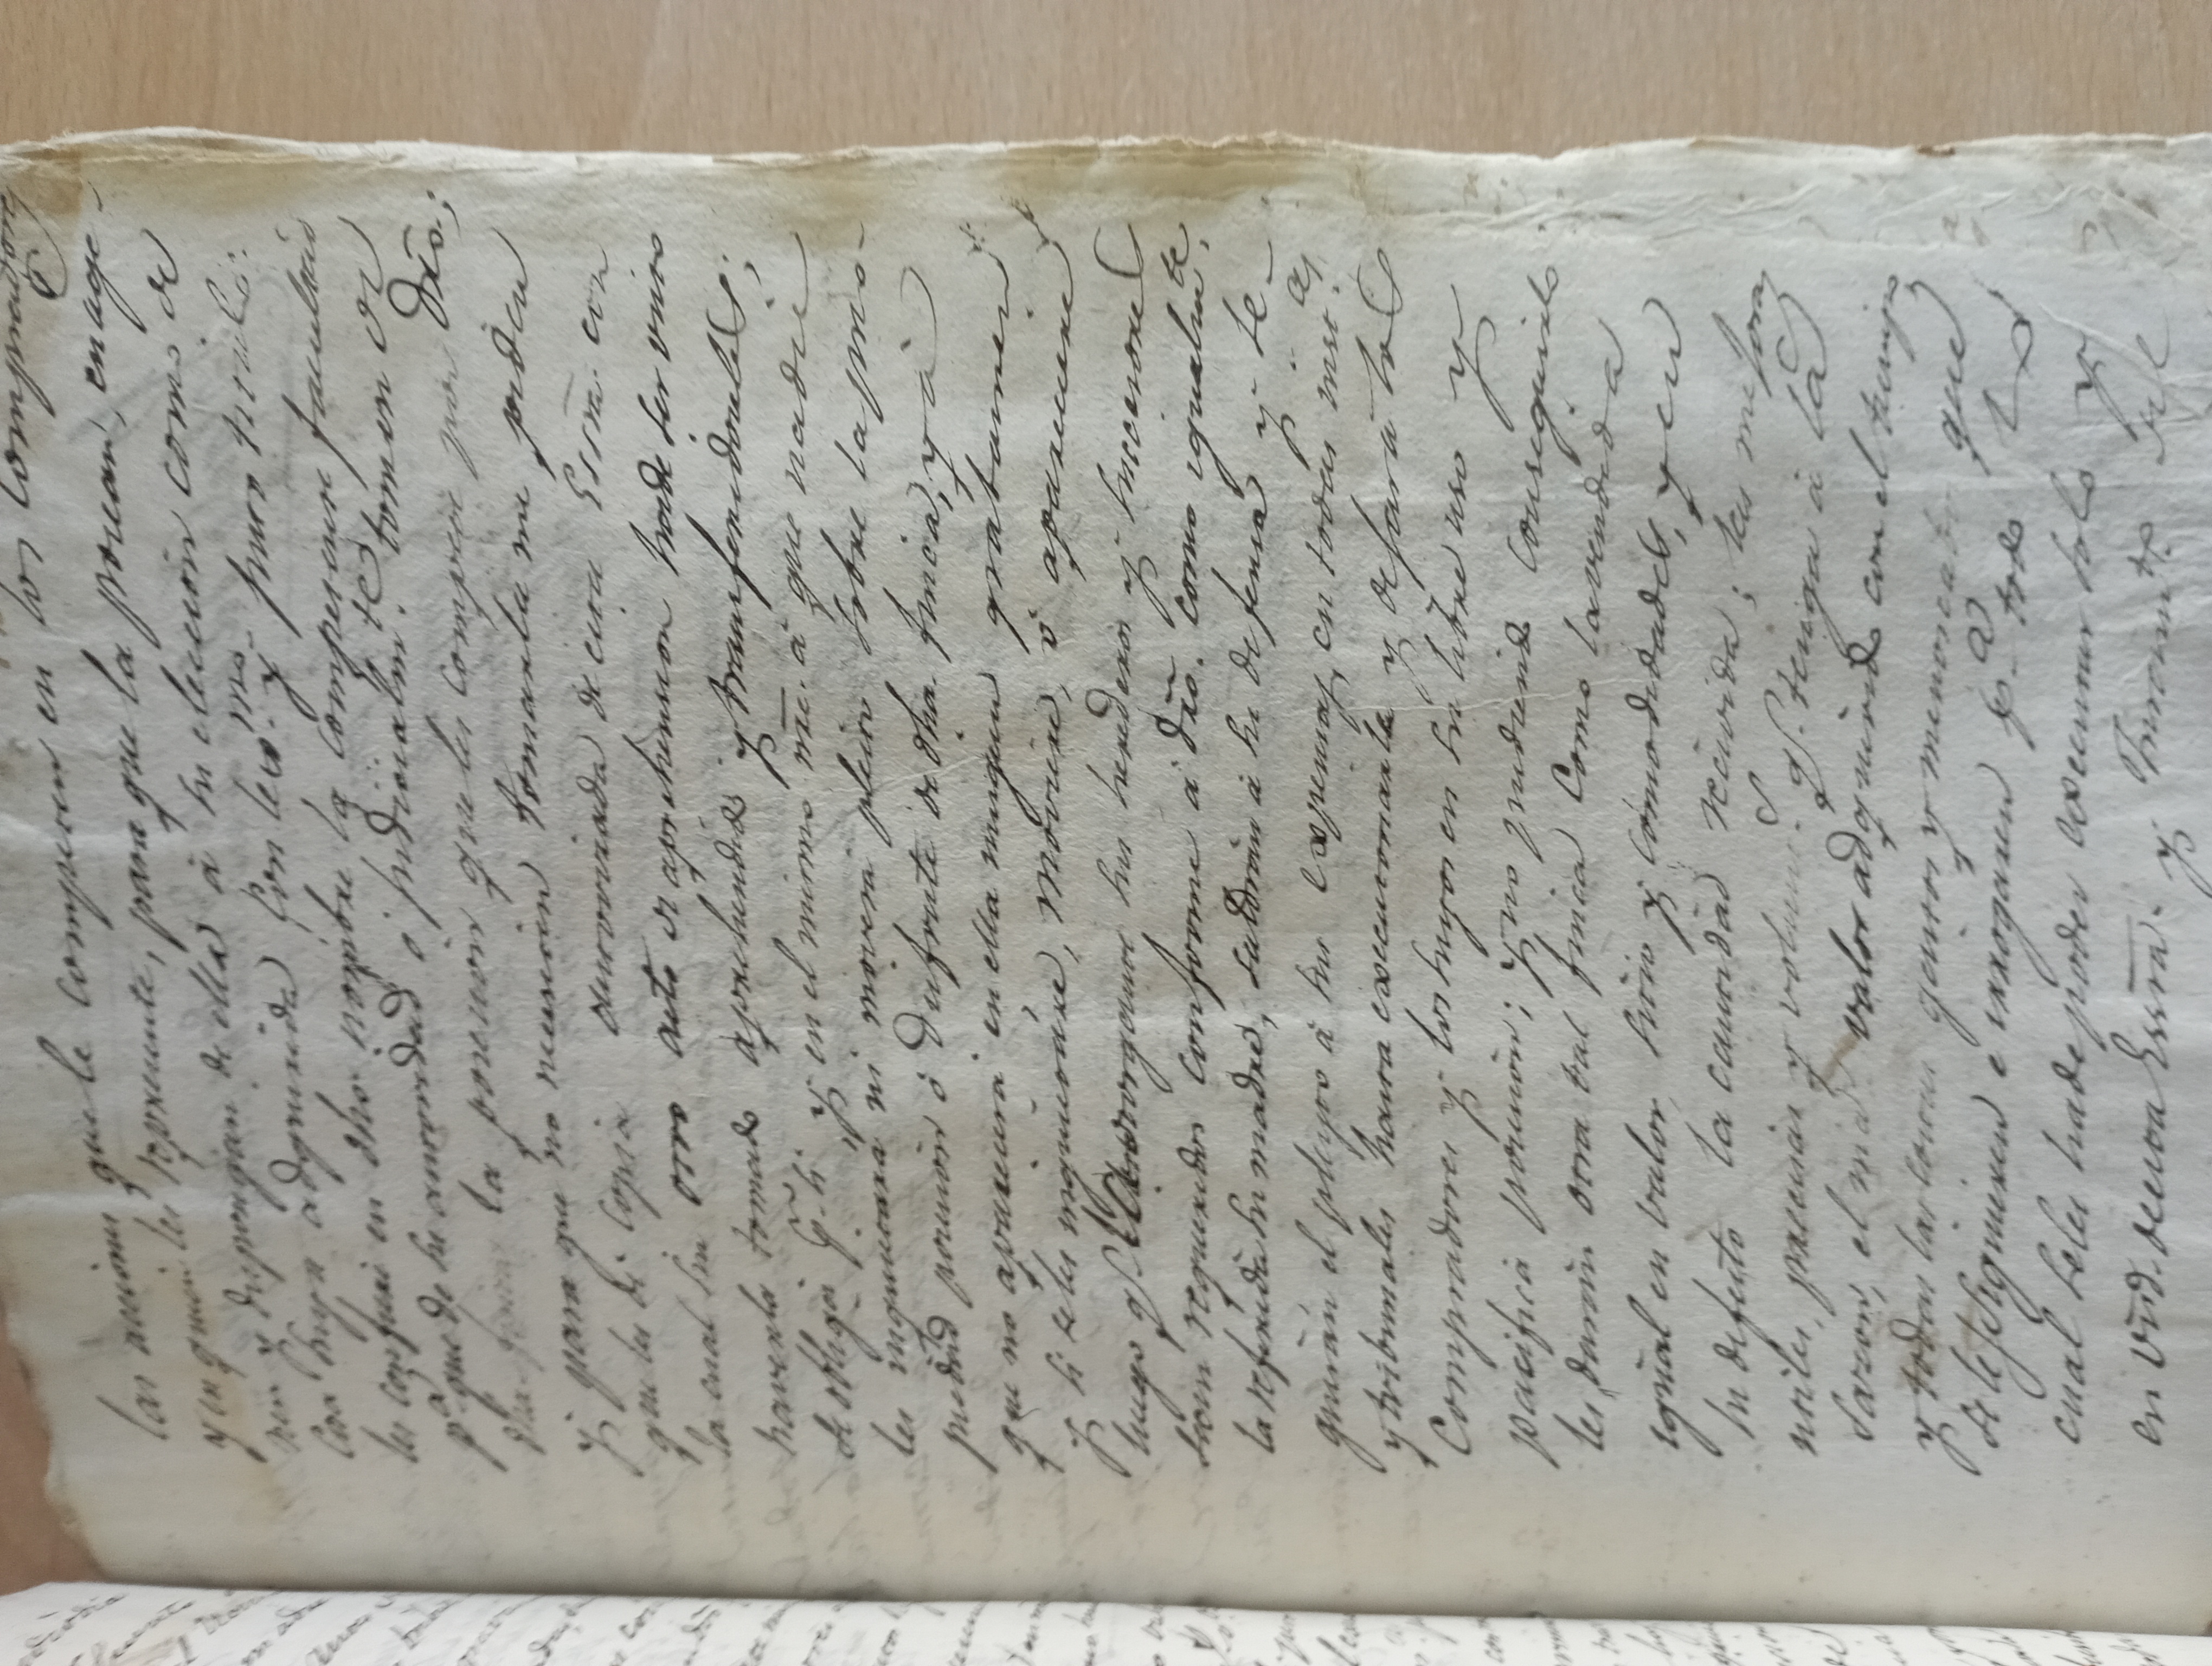 las acciones que le competen en los Compradores
y en quien les represente, para que la posean, enage-
nen y dispongan de ella á su eleccion como de
cosa suya adquirida con lexmo. y justo titulo:
les confiere en dho nombre la competente facultad
pa. que de su autoridad ó judicialmte. tomen de
dha. finca la posesion que les compete por dro.;
y para que no necesiten tomarla me piden
que les dé copia autorizada de esta Essra. con
la cual sin otro acto de aprehension ha de ser visto
haverla tomado aprehendido y transferidoseles;
se obliga p. si, y en el mismo nre. á que nadie
les inquietará ni moverá pleito sobre la pro-
piedad posesion ó disfrute de dha. finca, y á
que no aparecerá en ella ningun gravamen
y si se les inquietáre, moviere, ó apareciere
luego q. la otorgante sus herederos y succesores
sean requeridos conforme á dro. como igualmte.
la referida su madre, saldrán á su defensa y se-
guirán el pleyto á sus expensas, en todas instas.
y tribunales hasta executoriarla y dejar á los
Compradores y los suyos en su libre uso y
pacifica posesion; y no pudiendo conseguirlo
les darán otra tal finca como la vendida
igual en valor, sitio y comodidades, y en
su defecto la cantidad recivida; las mejoras
utiles, precisas y volunts. q. tenga á la
sazon, el mas valor adquirido con el tiempo,
y todas las costas gastos y menoscabos que
se les siguieren e irrogaren pa. todo lo
cual se les ha de poder executar solo y
en vird. de esta Essra. y Juramte. del